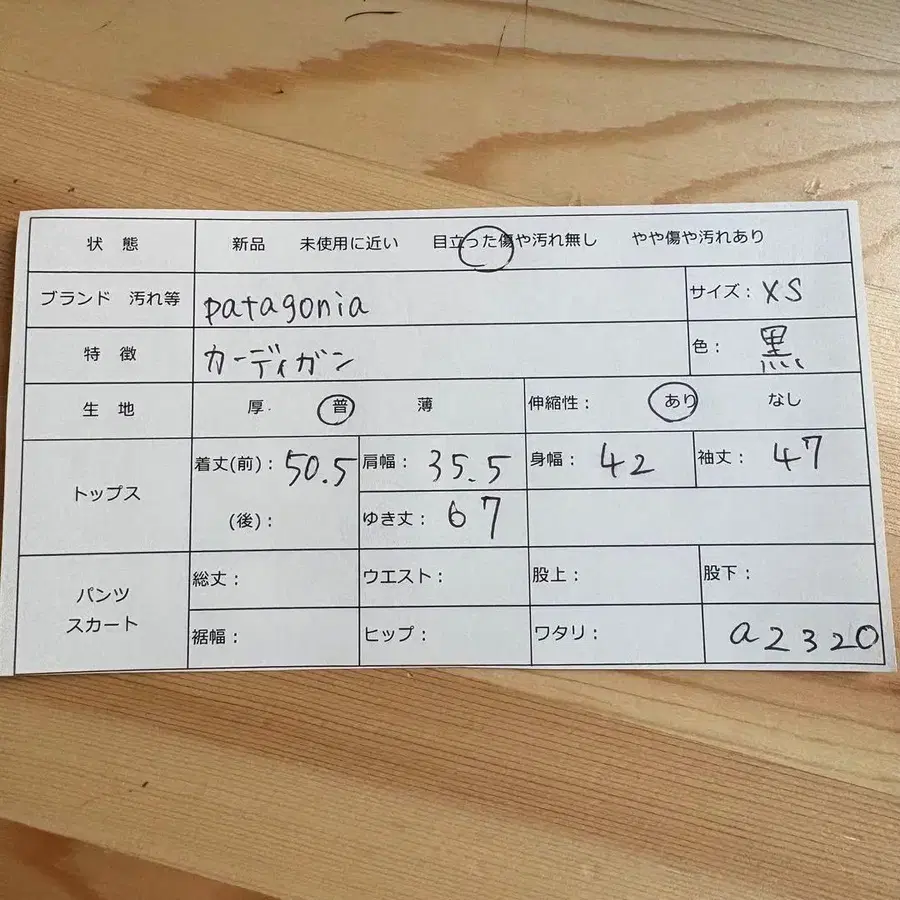 状 態 新品 未使用に近い 目立った傷や汚れ無し やや傷や汚れあり
ブランド 汚れ等 patagonia サイズ: XS
特 徴 カーディガン 色: 黒
生 地 厚 普 薄 伸縮性: あり なし
トップス 着丈(前): 50.5 肩幅: 35.5 身幅: 42 袖丈: 47
(後): ゆき丈: 67
パンツ 総丈: ウエスト: 股上: 股下:
スカート 裾幅: ヒップ: ワタリ: a2320